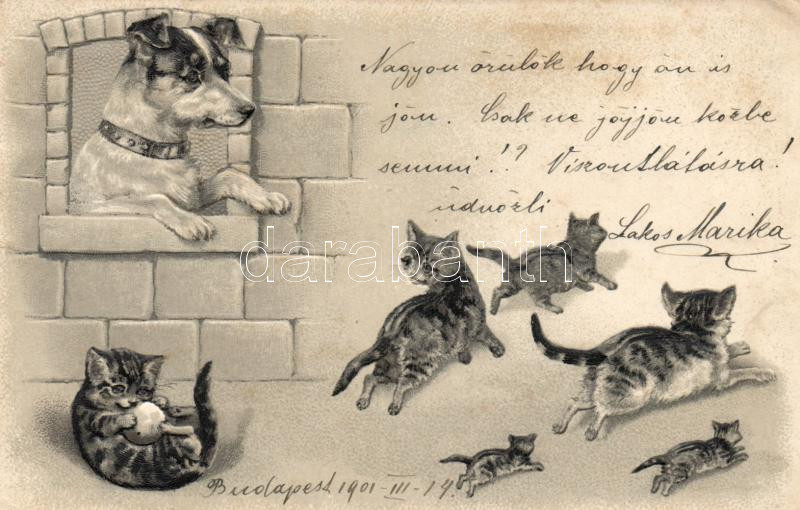 Nagyon örülök hogy ön is
jön. Csak ne jöjjön közbe
semmi!? Viszontlátásra!
üdvözli
Lakos Marika
darabanth
Budapest 1901-III-14.